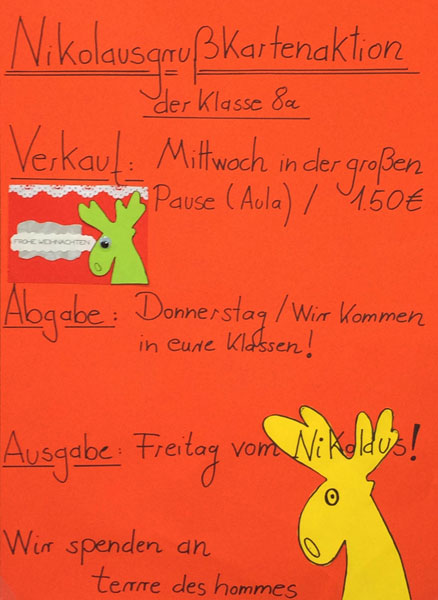 Nikolausgrußkartenaktion
der Klasse 8a
Verkauf: Mittwoch in der großen
Pause (Aula) / 1.50€
FROHE WEIHNACHTEN
Abgabe: Donnerstag / Wir kommen
in eure Klassen!
Ausgabe: Freitag vom Nikolaus!
Wir spenden an
terre des hommes